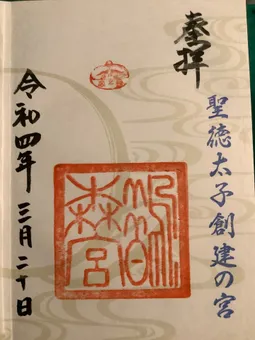 奉拝
聖徳太子創建の宮
鵲
森宮
令和四年 三月二十日